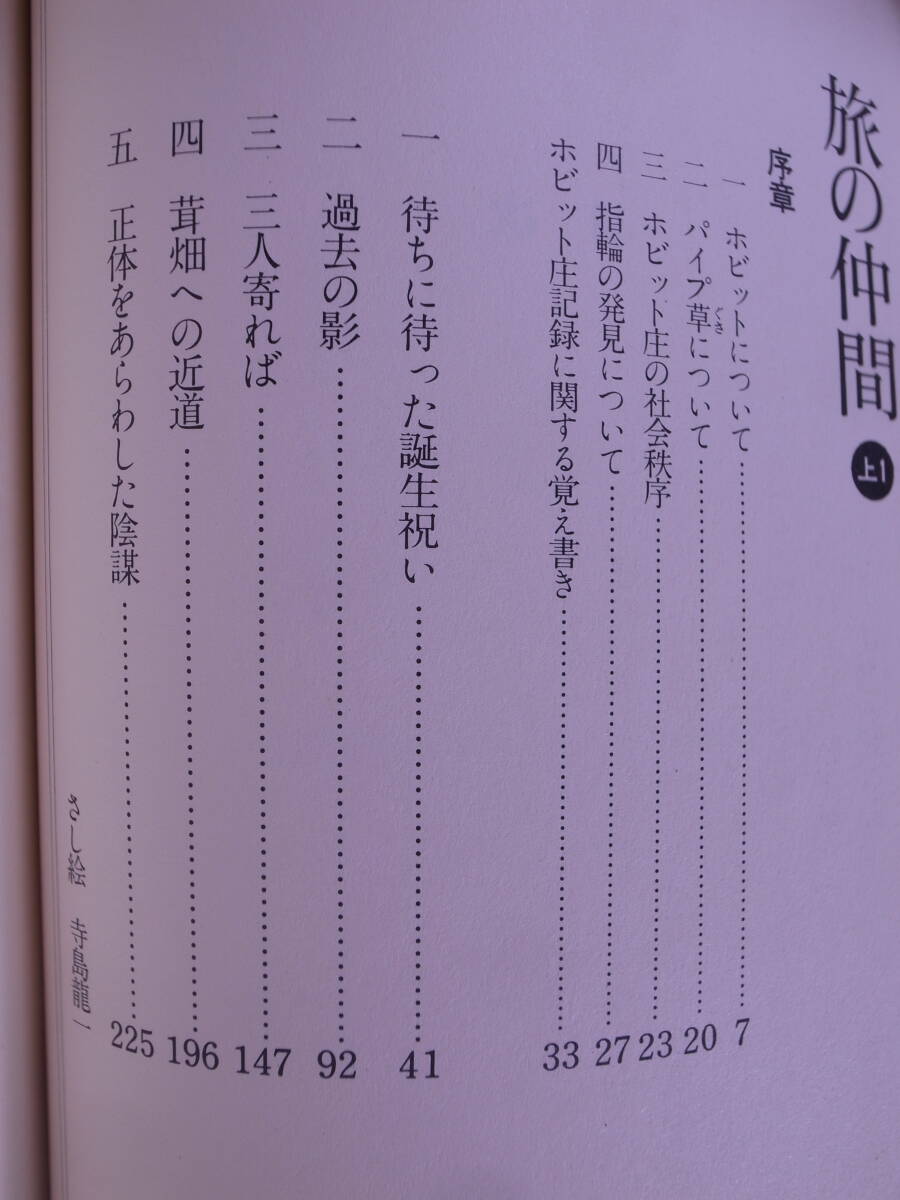 旅の仲間 上1
序章
一 ホビットについて……………………7
二 パイプ草について……………………20
くさ
三 ホビット庄の社会秩序……………………23
四 指輪の発見について……………………27
ホビット庄記録に関する覚え書き……………………33
一 待ちに待った誕生祝い……………………41
二 過去の影……………………92
三 三人寄れば……………………147
四 茸畑への近道……………………196
五 正体をあらわした陰謀……………………225
さし絵 寺島龍一